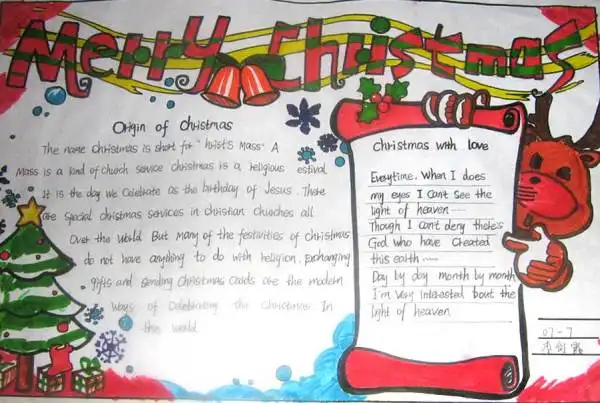 Merry Christmas
Origin of Christmas
The name Christmas is short for "hrist's Mass" A
Mass is a kind of church service Christmas is a religious estival
It is the day we Celebrate as the birthday of Jesus. There
are special christmas services in christian Churches all
Over the World But many of the festivities of christmas
do not have anything to do with religion. Exchanging
gifts and sending Christmas Cards are the modern
Ways of Celebrating the Christmas In
the world
Christmas with love
Everytime. When I does
my eyes I Cant See the
light of heaven......
Though I can't deny there's
God who have Created
this earth......
Day by day month by month
I'm Very interested bout the
light of heaven
07-7
李